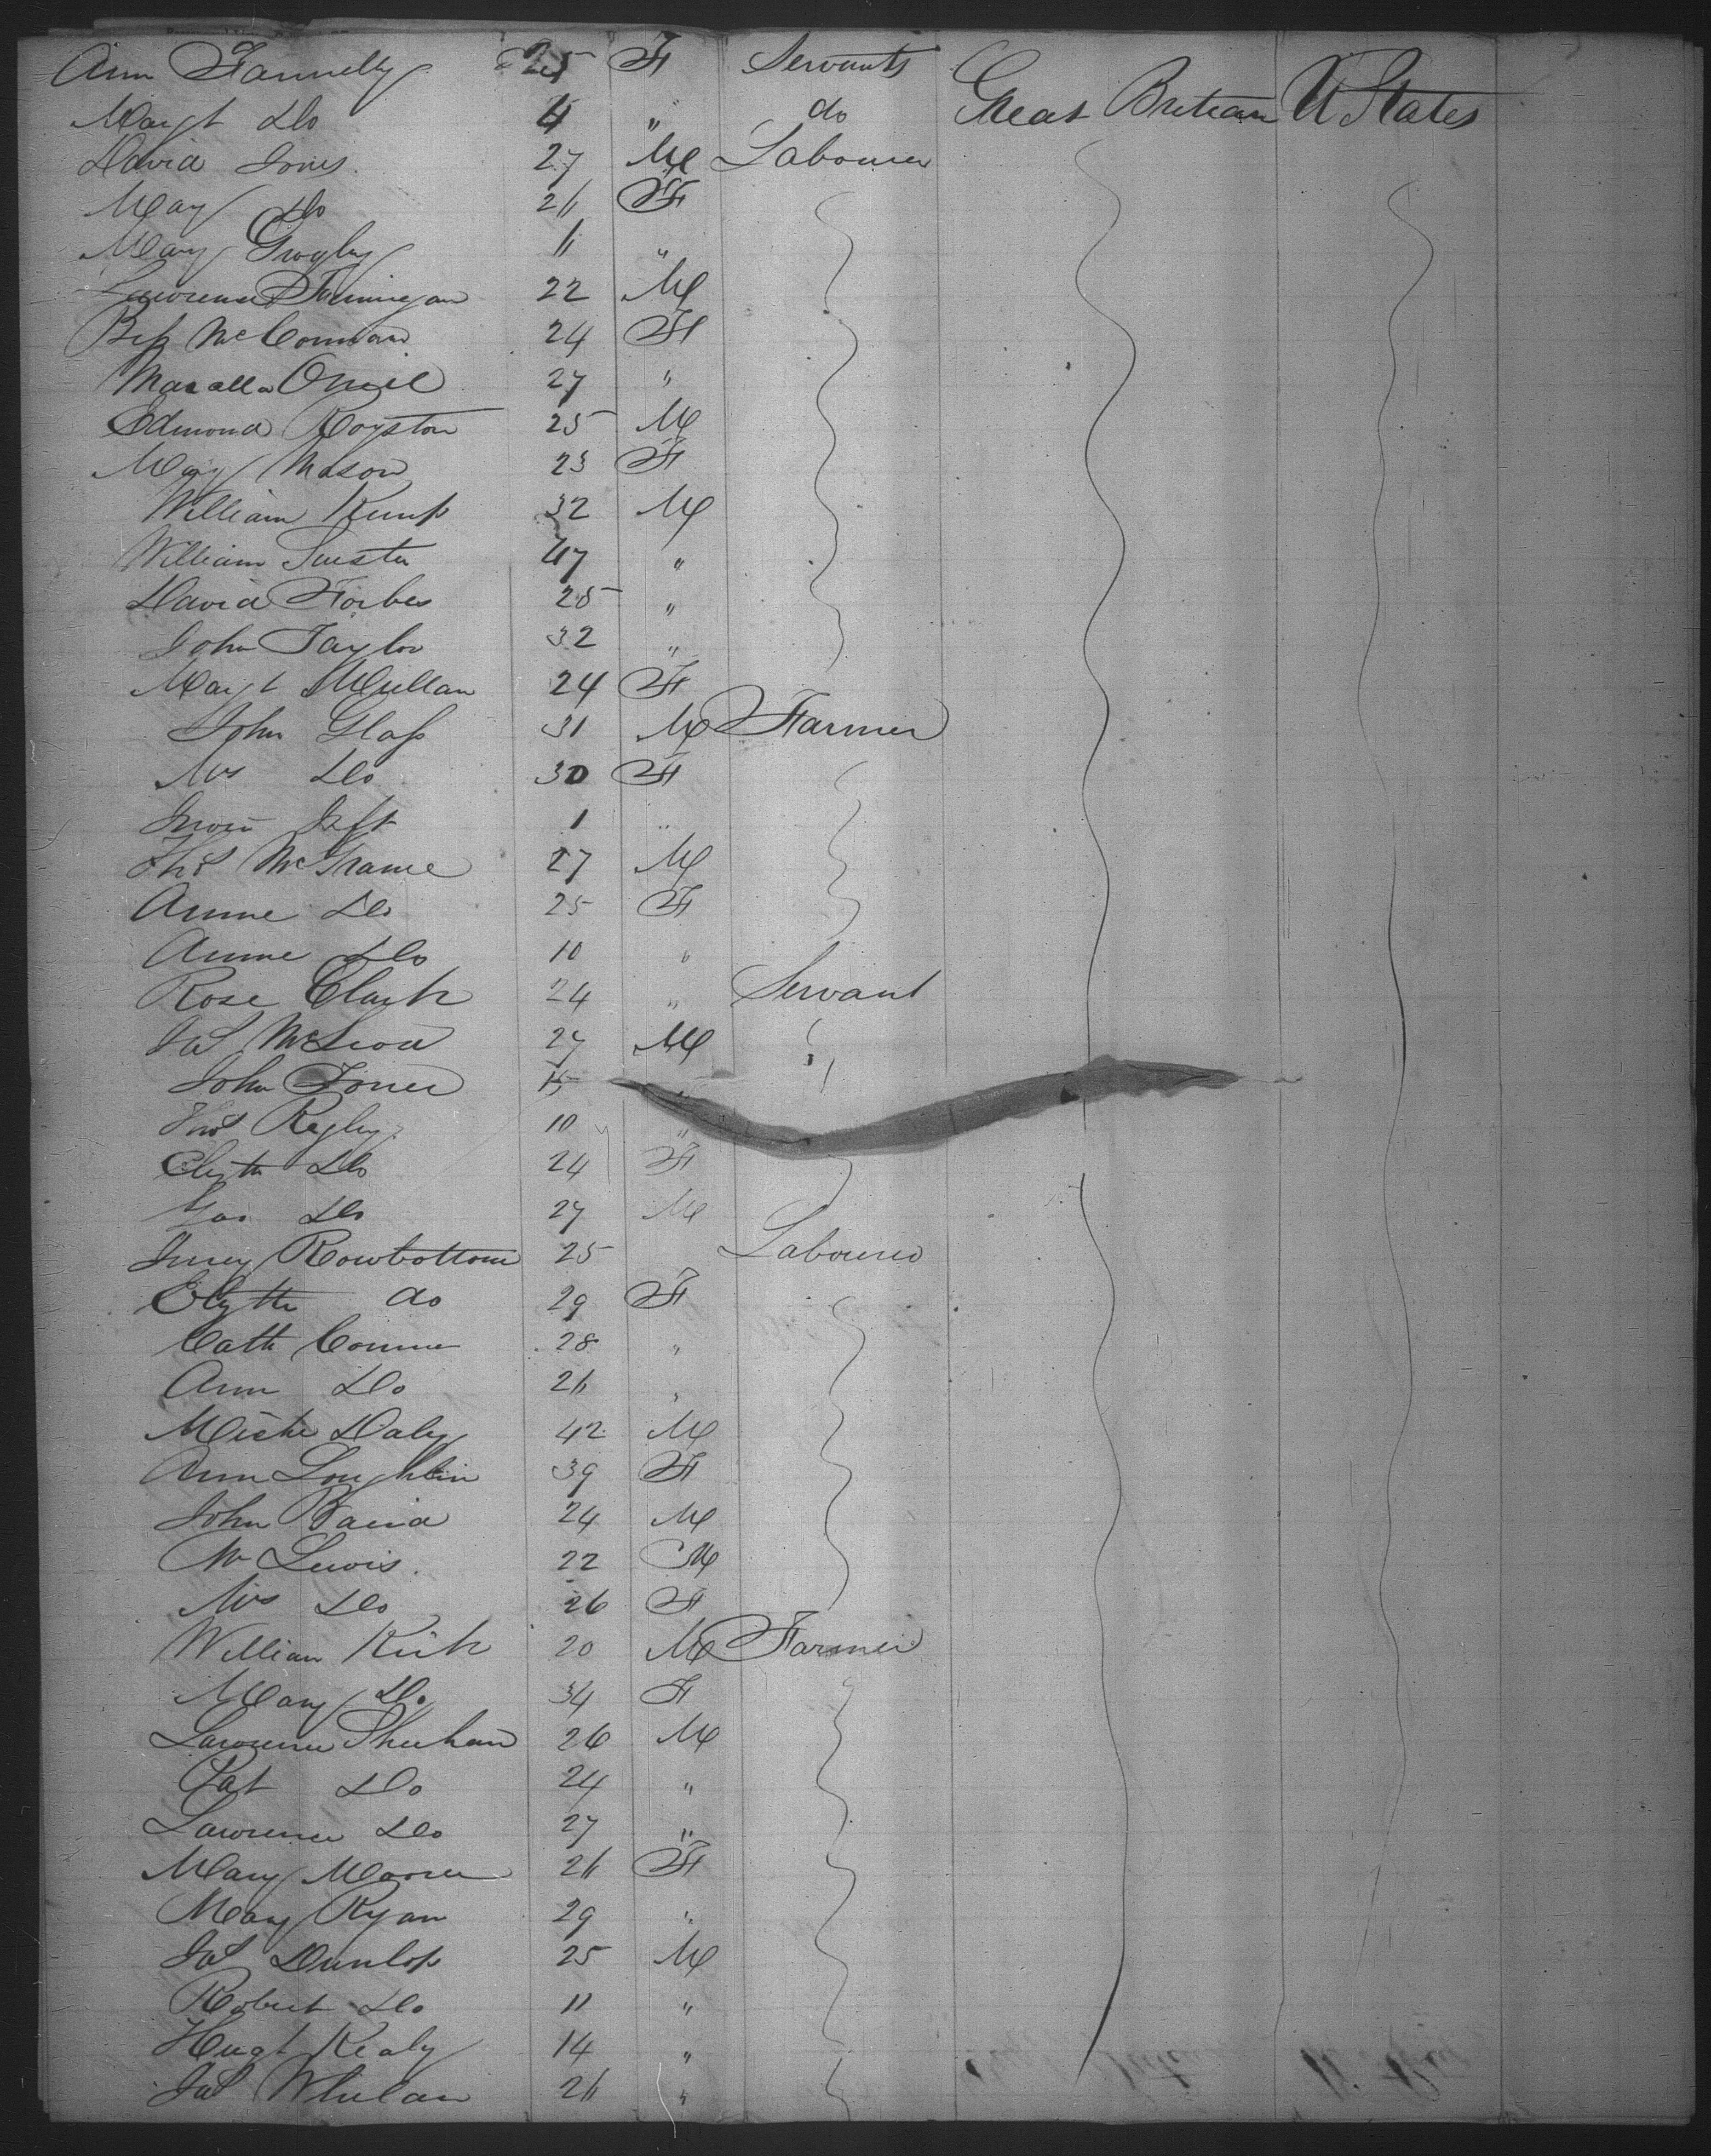 Ann Fannelly 25 F Servants
Margt Do 4 " do Great Britian U States
David Jones 27 M Labourer
Mary Do 26 F
Mary 11 "
Lawrence Finnigan 22 M
Bess McConnan 24 F
Maralla Oneil 27 "
Edmond Royston 25 M
Mary Mason 23 F
William Kemp 32 M
William 47 "
David Forbes 25 "
John Taylor 32 "
Margt Mullan 24 F
John Glass 31 M Farmer
Mrs Do 30 F
Inft 1 "
Ths McGrame 27 M
Annie Do 25 F
Annie Do 10 "
Rose Clark 24 " Servant
Jas McLeod 27 M
John 15 "
Thos Regby 10 "
Elizth Do 24 F
Do 27 M
Rowbottom 25 Labourer
Elizth do 29 F
Cath 28 "
Ann Do 26 "
Miche Daly 42 M
Ann Loughlin 39 F
John Baird 24 M
Mr Lewis 22 M
Mrs Do 26 F
William Kirk 20 M Farmer
Mary Do 34 F
Lawrence Sheehan 26 M
Pat Do 24 "
Lawrence Do 27 "
Mary 26 F
Mary Ryan 29 "
Jas Dunlop 25 M
Robert Do 11 "
Hugh Kealy 14 "
Jas Whelan 26 "